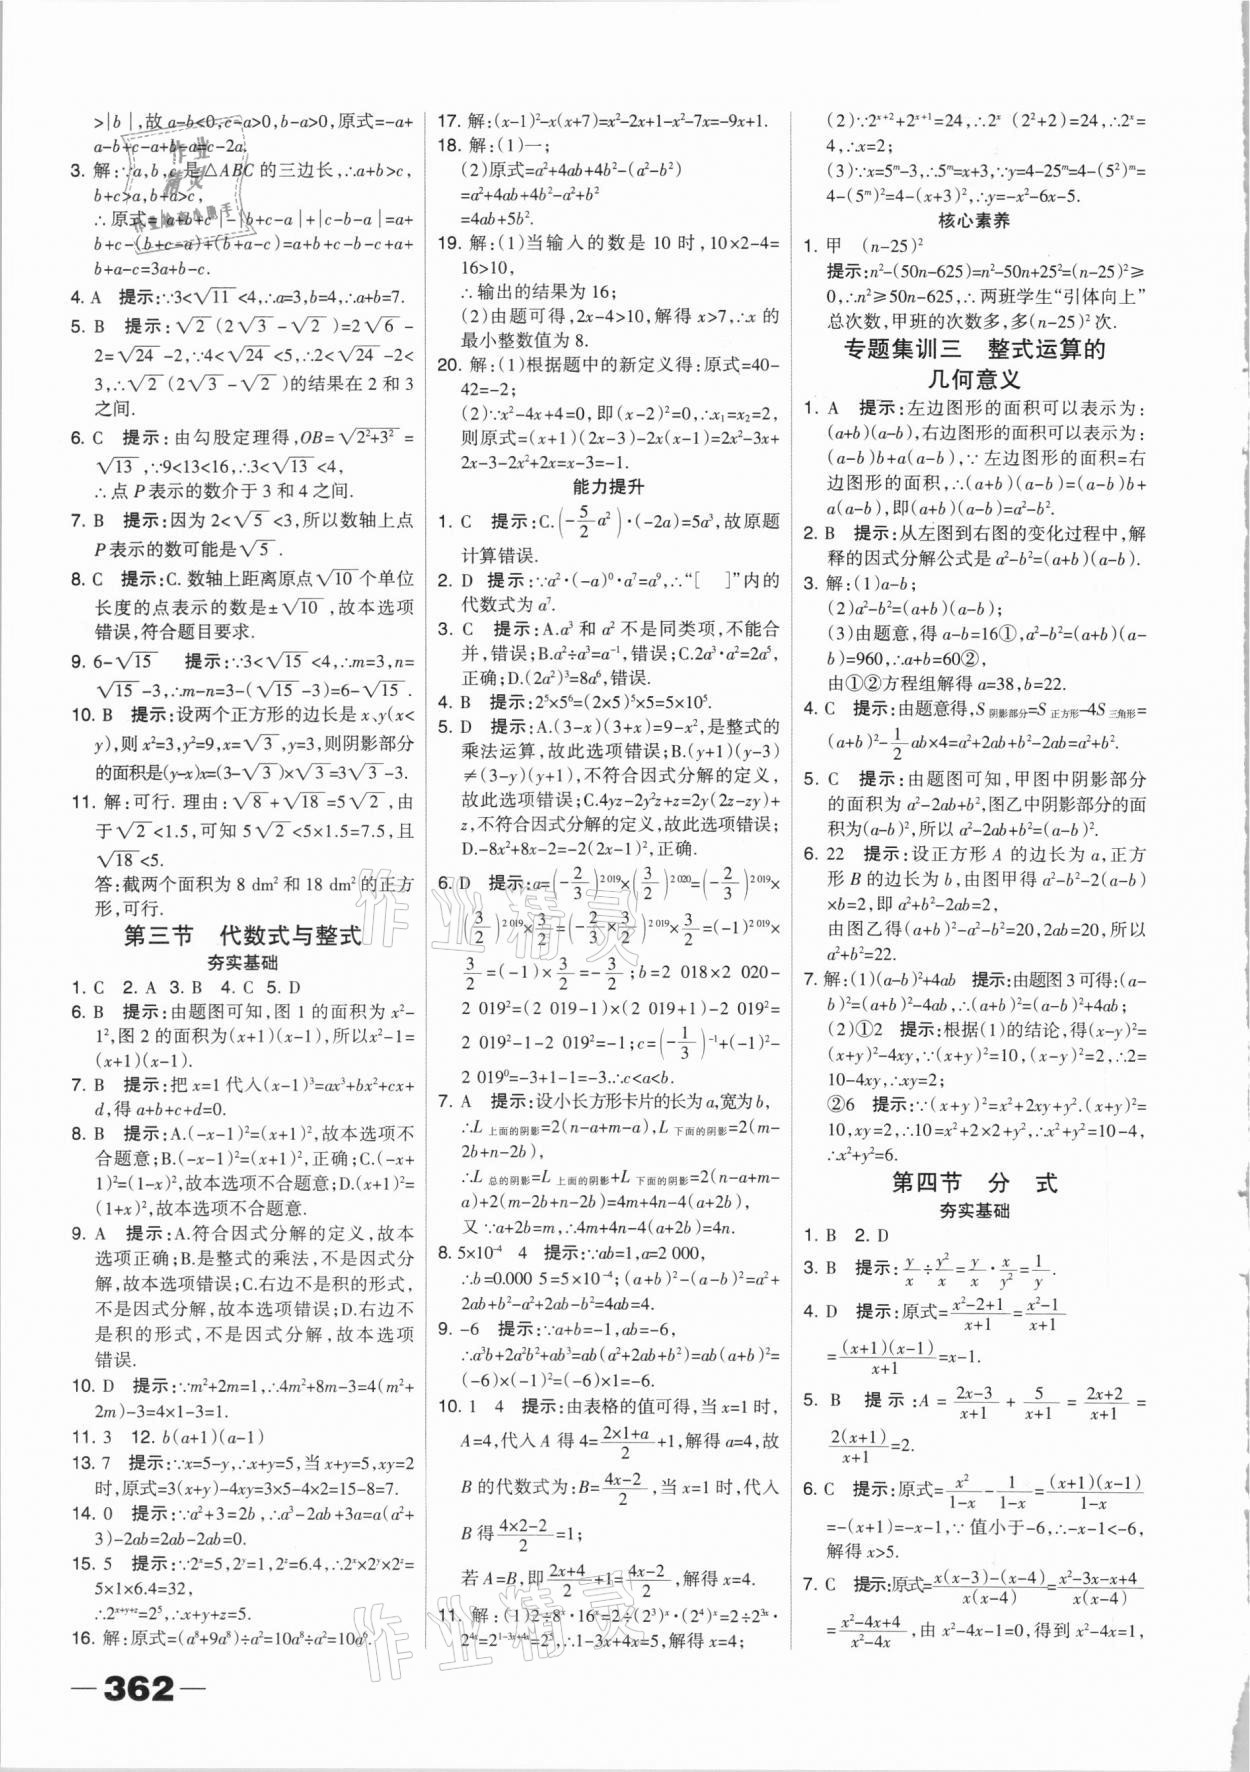 >|b|,故a-b<0,c-a>0,b-a>0,原式=-a+
a-b+c-a+b-a=c-2a.
3. 解:∵a,b,c是△ABC的三边长,∴a+b>c,
b+c>a,b+a>c,
∴原式=|a+b+c|-|b+c-a|+|c-b-a|=a+
b+c-(b+c-a)+(b+a-c)=a+b+c-b-c+a+
b+a-c=3a+b-c.
4. A 提示:∵3<√11<4,∴a=3,b=4,∴a+b=7.
5. B 提示:√2(2√3-√2)=2√6-
2=√24-2,∵4<√24<5,∴2<√24-2<
3,∴√2(2√3-√2)的结果在2和3
之间.
6. C 提示:由勾股定理得,OB=√(2²+3²)=
√13,∵9<13<16,∴3<√13<4,
∴点P表示的数介于3和4之间.
7. B 提示:因为2<√5<3,所以数轴上点
P表示的数可能是√5.
8. C 提示:C. 数轴上距离原点√10个单位
长度的点表示的数是±√10,故本选项
错误,符合题目要求.
9. 6-√15 提示:∵3<√15<4,∴m=3,n=
√15-3,∴m-n=3-(√15-3)=6-√15.
10. B 提示:设两个正方形的边长是x、y(x<
y),则x²=3,y²=9,x=√3,y=3,则阴影部分
的面积是(y-x)x=(3-√3)×√3=3√3-3.
11. 解:可行. 理由:√8+√18=5√2,由
于√2<1.5,可知5√2<5×1.5=7.5,且
√18<5.
答:截两个面积为8 dm²和18 dm²的正方
形,可行.
第三节 代数式与整式
夯实基础
1. C 2. A 3. B 4. C 5. D
6. B 提示:由题图可知,图1的面积为x²-
1²,图2的面积为(x+1)(x-1),所以x²-1=
(x+1)(x-1).
7. B 提示:把x=1代入(x-1)³=ax³+bx²+cx+
d,得a+b+c+d=0.
8. B 提示:A.(-x-1)²=(x+1)²,故本选项不
合题意;B.(-x-1)²=(x+1)²,正确;C.(-x+
1)²=(1-x)²,故本选项不合题意;D.(x+1)²=
(1+x)²,故本选项不合题意.
9. A 提示:A.符合因式分解的定义,故本
选项正确;B.是整式的乘法,不是因式分
解,故本选项错误;C.右边不是积的形式,
不是因式分解,故本选项错误;D.右边不
是积的形式,不是因式分解,故本选项
错误.
10. D 提示:∵m²+2m=1,∴4m²+8m-3=4(m²+
2m)-3=4×1-3=1.
11. 3 12. b(a+1)(a-1)
13. 7 提示:∵x=5-y,∴x+y=5,当x+y=5,xy=2
时,原式=3(x+y)-4xy=3×5-4×2=15-8=7.
14. 0 提示:∵a²+3=2b,∴a³-2ab+3a=a(a²+
3)-2ab=2ab-2ab=0.
15. 5 提示:∵2ˣ=5,2ʸ=1,2ᶻ=6.4,∴2ˣ×2ʸ×2ᶻ=
5×1×6.4=32,
∴2ˣ⁺ʸ⁺ᶻ=2⁵,∴x+y+z=5.
16. 解:原式=(a⁸+9a⁸)÷a²=10a⁸÷a²=10a⁶.
17. 解:(x-1)²-x(x+7)=x²-2x+1-x²-7x=-9x+1.
18. 解:(1)一;
(2)原式=a²+4ab+4b²-(a²-b²)
=a²+4ab+4b²-a²+b²
=4ab+5b².
19. 解:(1)当输入的数是10时,10×2-4=
16>10,
∴输出的结果为16;
(2)由题可得,2x-4>10,解得x>7,∴x的
最小整数值为8.
20. 解:(1)根据题中的新定义得:原式=40-
42=-2;
(2)∵x²-4x+4=0,即(x-2)²=0,∴x₁=x₂=2,
则原式=(x+1)(2x-3)-2x(x-1)=2x²-3x+
2x-3-2x²+2x=x-3=-1.
能力提升
1. C 提示:C.(-5/2 a²)·(-2a)=5a³,故原题
计算错误.
2. D 提示:∵a²·(-a)⁰·a⁷=a⁹,∴“[ ]”内的
代数式为a⁷.
3. C 提示:A.a³和a²不是同类项,不能合
并,错误;B.a²÷a³=a⁻¹,错误;C.2a³·a²=2a⁵,
正确;D.(2a²)³=8a⁶,错误.
4. B 提示:2⁵×5⁶=(2×5)⁵×5=5×10⁵.
5. D 提示:A.(3-x)(3+x)=9-x²,是整式的
乘法运算,故此选项错误;B.(y+1)(y-3)
≠(3-y)(y+1),不符合因式分解的定义,
故此选项错误;C.4yz-2y²z+z=2y(2z-yz)+
z,不符合因式分解的定义,故此选项错误;
D.-8x²+8x-2=-2(2x-1)²,正确.
6. D 提示:a=(-2/3)²⁰¹⁹×(3/2)²⁰²⁰=(-2/3)²⁰¹⁹×
(3/2)²⁰¹⁹×3/2=(-2/3×3/2)²⁰¹⁹×3/2=(-1)²⁰¹⁹×
3/2=(-1)×3/2=-3/2;b=2 018×2 020-
2 019²=(2 019-1)×(2 019+1)-2 019²=
2 019²-1-2 019²=-1;c=(-1/3)⁻¹+(-1)²-
2 019⁰=-3+1-1=-3.∴c<a<b.
7. A 提示:设小长方形卡片的长为a,宽为b,
∴L上面的阴影=2(n-a+m-a),L下面的阴影=2(m-
2b+n-2b),
∴L总的阴影=L上面的阴影+L下面的阴影=2(n-a+m-
a)+2(m-2b+n-2b)=4m+4n-4(a+2b),
又∵a+2b=m,∴4m+4n-4(a+2b)=4n.
8. 5×10⁻⁴ 4 提示:∵ab=1,a=2 000,
∴b=0.000 5=5×10⁻⁴;(a+b)²-(a-b)²=a²+
2ab+b²-a²+2ab-b²=4ab=4.
9. -6 提示:∵a+b=-1,ab=-6,
∴a³b+2a²b²+ab³=ab(a²+2ab+b²)=ab(a+b)²=
(-6)×(-1)²=(-6)×1=-6.
10. 1 4 提示:由表格的值可得,当x=1时,
A=4,代入A得4=(2×1+a)/2+1,解得a=4,故
B的代数式为:B=(4x-2)/2,当x=1时,代入
B得(4×2-2)/2=1;
若A=B,即(2x+4)/2+1=(4x-2)/2,解得x=4.
11. 解:(1)2÷8ˣ·16ˣ=2÷(2³)ˣ·(2⁴)ˣ=2÷2³ˣ·
2⁴ˣ=2¹⁻³ˣ⁺⁴ˣ=2⁵,∴1-3x+4x=5,解得x=4;
(2)∵2ˣ⁺²+2ˣ⁺¹=24,∴2ˣ(2²+2)=24,∴2ˣ=
4,∴x=2;
(3)∵x=5ᵐ-3,∴5ᵐ=x+3,∵y=4-25ᵐ=4-(5²)ᵐ=
4-(5ᵐ)²=4-(x+3)²,∴y=-x²-6x-5.
核心素养
1. 甲 (n-25)²
提示:n²-(50n-625)=n²-50n+25²=(n-25)²≥
0,∴n²≥50n-625,∴两班学生“引体向上”
总次数,甲班的次数多,多(n-25)²次.
专题集训三 整式运算的
几何意义
1. A 提示:左边图形的面积可以表示为:
(a+b)(a-b),右边图形的面积可以表示为:
(a-b)b+a(a-b),∵左边图形的面积=右
边图形的面积,∴(a+b)(a-b)=(a-b)b+
a(a-b),即(a+b)(a-b)=a²-b².
2. B 提示:从左图到右图的变化过程中,解
释的因式分解公式是a²-b²=(a+b)(a-b).
3. 解:(1)a-b;
(2)a²-b²=(a+b)(a-b);
(3)由题意,得a-b=16①,a²-b²=(a+b)(a-
b)=960,∴a+b=60②,
由①②方程组解得a=38,b=22.
4. C 提示:由题意得,S阴影部分=S正方形-4S三角形=
(a+b)²-1/2 ab×4=a²+2ab+b²-2ab=a²+b².
5. C 提示:由题图可知,甲图中阴影部分
的面积为a²-2ab+b²,图乙中阴影部分的面
积为(a-b)²,所以a²-2ab+b²=(a-b)².
6. 22 提示:设正方形A的边长为a,正方
形B的边长为b,由图甲得a²-b²-2(a-b)
×b=2,即a²+b²-2ab=2,
由图乙得(a+b)²-a²-b²=20,2ab=20,所以
a²+b²=22.
7. 解:(1)(a-b)²+4ab 提示:由题图3可得:(a-
b)²=(a+b)²-4ab,∴(a+b)²=(a-b)²+4ab;
(2)①2 提示:根据(1)的结论,得(x-y)²=
(x+y)²-4xy,∵(x+y)²=10,(x-y)²=2,∴2=
10-4xy,∴xy=2;
②6 提示:∵(x+y)²=x²+2xy+y².(x+y)²=
10,xy=2,∴10=x²+2×2+y²,∴x²+y²=10-4,
∴x²+y²=6.
第四节 分 式
夯实基础
1. B 2. D
3. B 提示:y/x÷y²/x=y/x·x/y²=1/y.
4. D 提示:原式=(x²-2+1)/(x+1)=(x²-1)/(x+1)
=(x+1)(x-1)/(x+1)=x-1.
5. B 提示:A=(2x-3)/(x+1)+5/(x+1)=(2x+2)/(x+1)=
2(x+1)/(x+1)=2.
6. C 提示:原式=x²/(1-x)-1/(1-x)=(x+1)(x-1)/(1-x)
=-(x+1)=-x-1,∵值小于-6,∴-x-1<-6,
解得x>5.
7. C 提示:原式=(x(x-3)-(x-4))/(x(x-4))=(x²-3x-x+4)/(x(x-4))
=(x²-4x+4)/(x²-4x),由x²-4x-1=0,得到x²-4x=1,
—362—
作业精灵
作业精灵